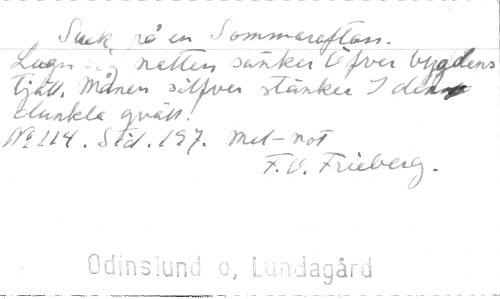 Suck på en Sommarafton.
Lugn natten sänker öfver bygdens
tjäll. Månen silfver stänker I den
dunkla qväll!
No 114. Sid. 197. Mel-not
F. V. Frieberg.
Odinslund o, Lundagård